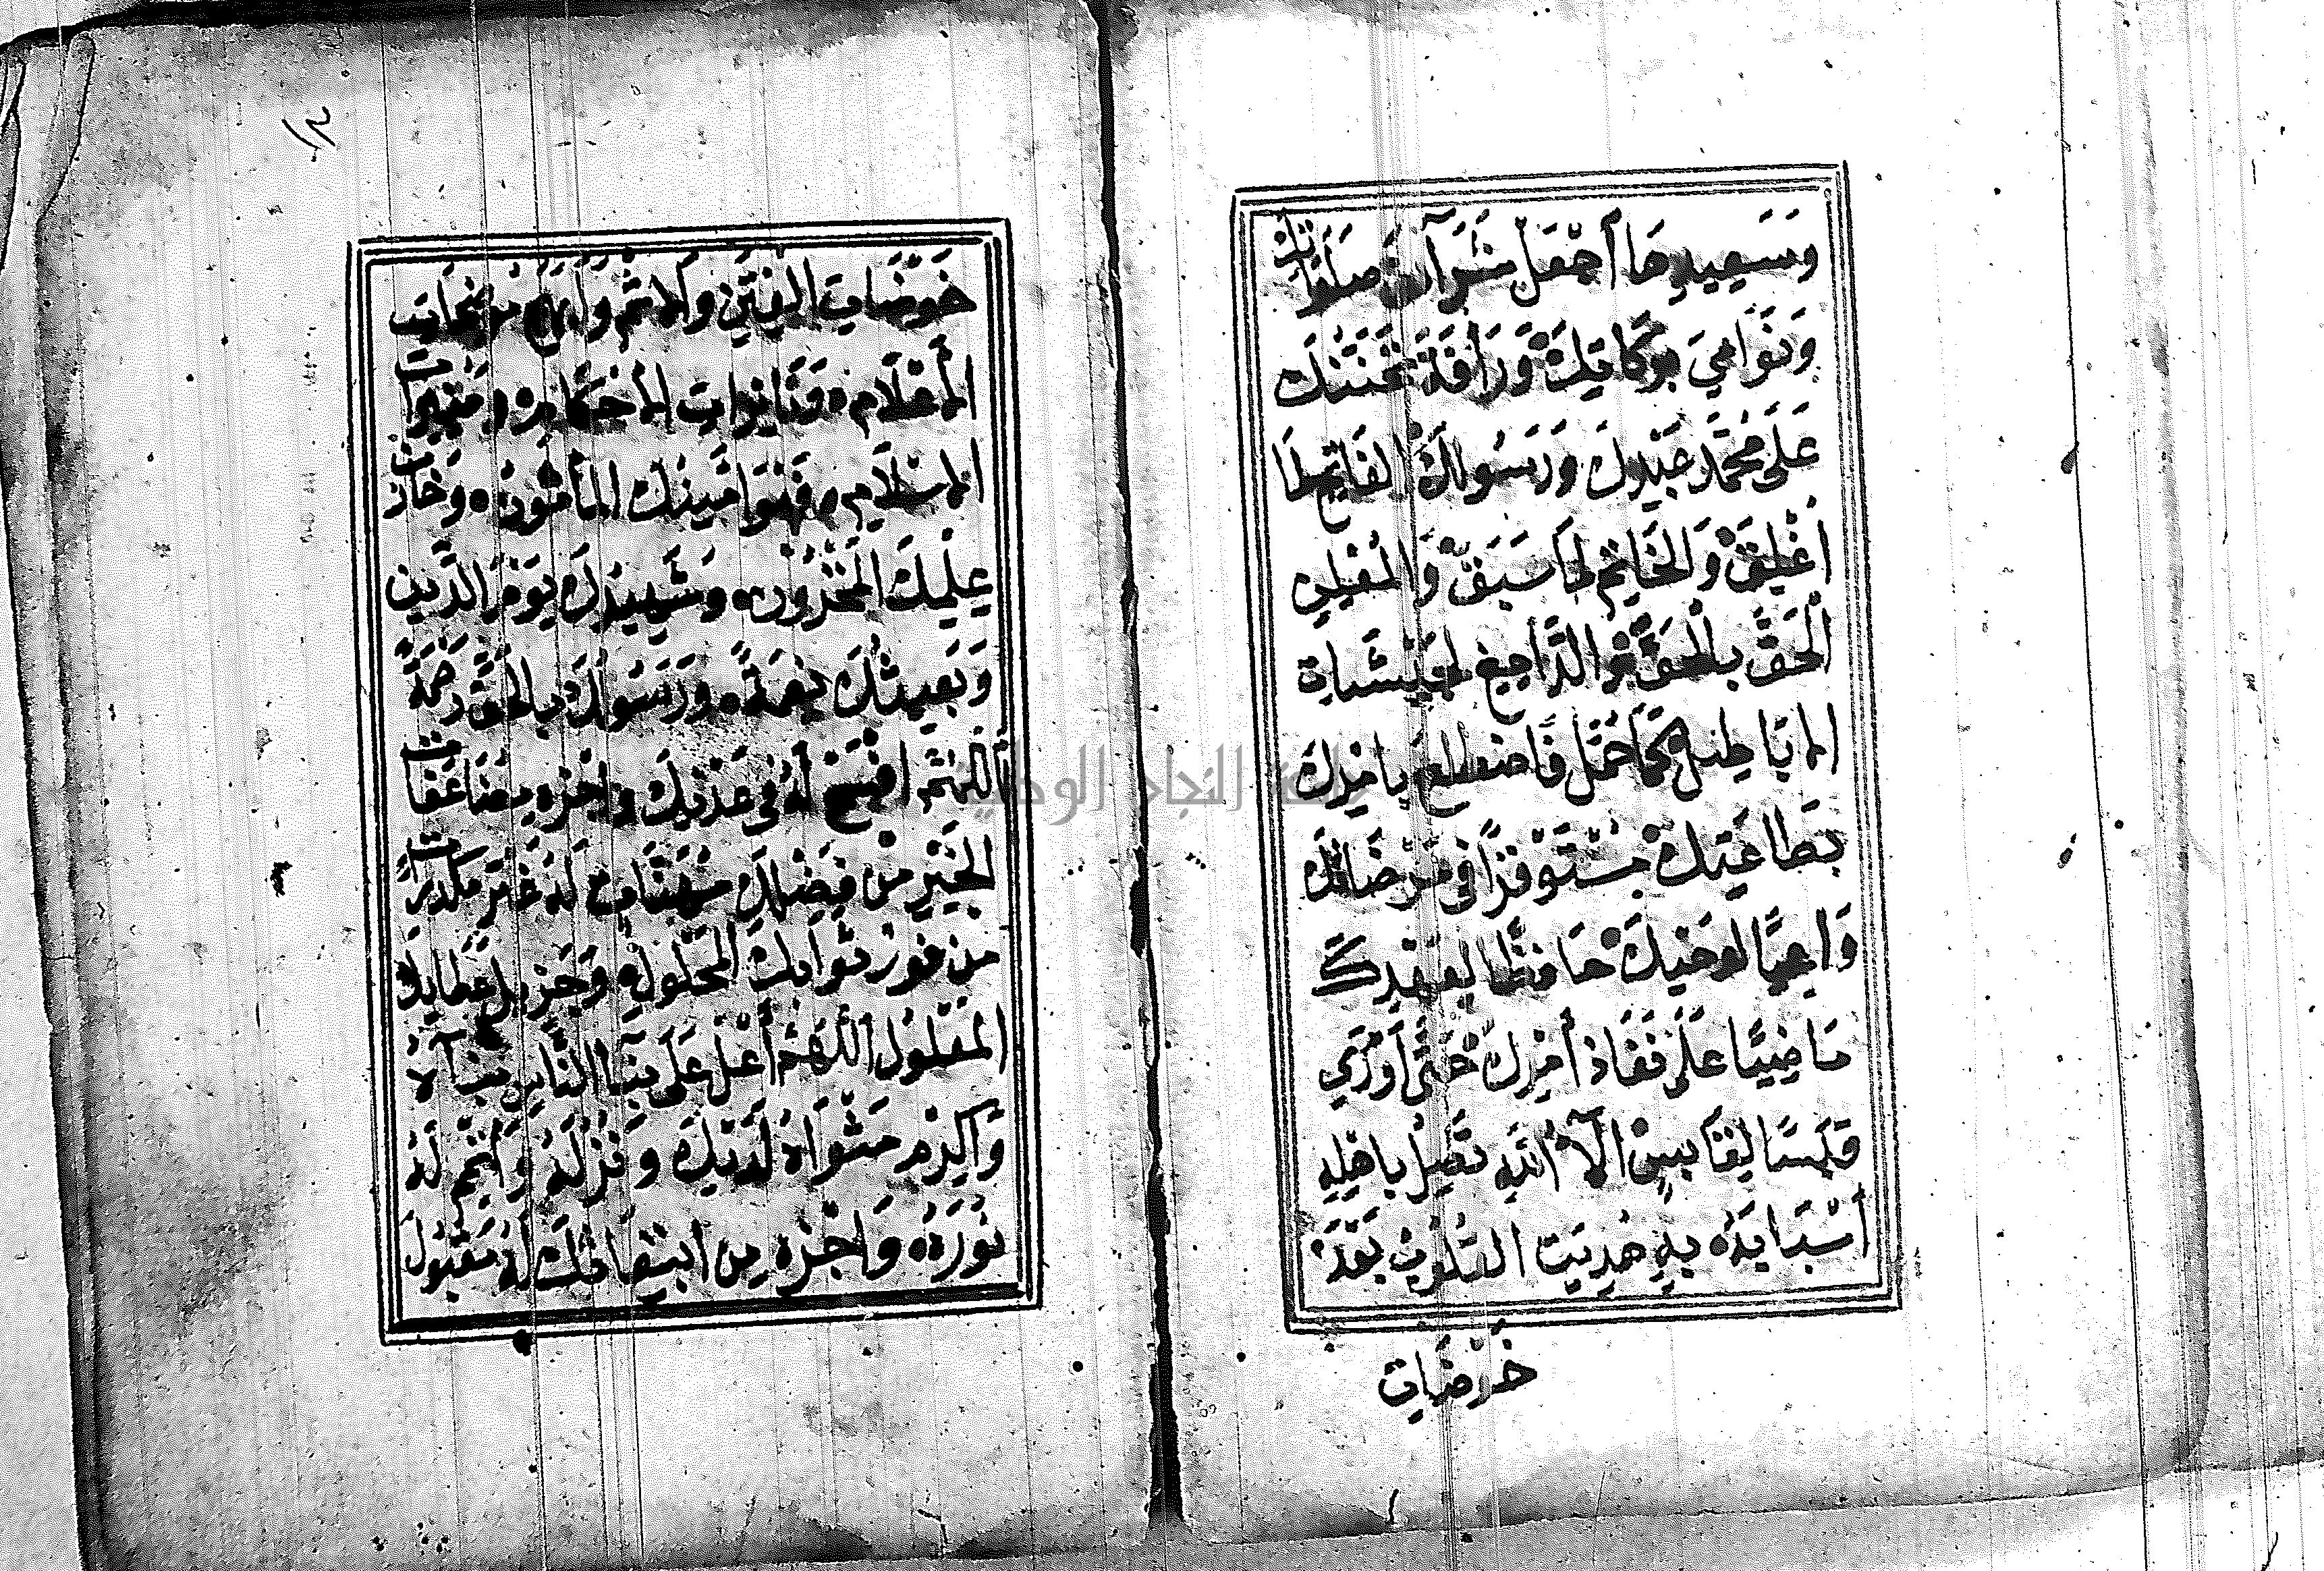 وَسَعِيدِهَا اجْعَلْ شَرَآئِفَ صَلَوَاتِكَ
وَنَوَامِيَ بَرَكَاتِكَ وَرَأفَةَ تَحَنُّنِكَ
عَلَى مُحَمَّدٍ عَبْدِكَ وَرَسُولِكَ الفَاتِحِ لِمَا
أُغْلِقَ وَالخَاتِمِ لِمَا سَبَقَ وَالمُعْلِنِ
الحَقَّ بِالحَقِّ وَالدَّامِغِ لِجَيْشَاتِ
الابَاطِيلِ كَمَا حُمِّلَ فَاضْطَلَعَ بِامْرِكَ
بِطَاعَتِكَ مُسْتَوْفِزًا فِي مَرْضَاتِكَ
وَاعِيًا لِوَحْيِكَ حَافِظًا لِعَهْدِكَ
مَاضِيًا عَلَى نَفَاذِ أمْرِكَ حَتَّى أوْرَى
قَبَسًا لِقَابِسٍ الآءُ اللهِ تَصِلُ بِاهْلِهِ
أسْبَابَهُ بِهِ هُدِيَتِ القُلُوبُ بَعْدَ
خَوْضَاتِ
خَوْضَاتِ الفِتَنِ وَالاثْمِ وَأبْهَجَ مُوضِحَاتِ
الأعْلَامِ وَنَائِرَاتِ الأحْكَامِ وَمُنِيرَاتِ
الاسْلَامِ فَهُوَ امِينُكَ المَأمُونُ وَخَازِنُ
عِلْمِكَ المَخْزُونِ وَشَهِيدُكَ يَوْمَ الدِّينِ
وَبَعِيثُكَ نِعْمَةً وَرَسُولُكَ بِالحَقِّ رَحْمَةً
أللهُمَّ افْسَحْ لَهُ فِي عَدْنِكَ وَاجْزِهِ مُضَاعَفَاتِ
الخَيْرِ مِنْ فَضْلِكَ مُهَنَّئَاتٍ لَهُ غَيْرَ مُكَدَّرَاتٍ
مِنْ فَوْزِ ثَوَابِكَ المَحْلُولِ وَجَزِيلِ عَطَايِكَ
المَعْلُولِ أللهُمَّ أعْلِ عَلَى بِنَاءِ النَّاسِ بِنَآءَهُ
وَأكْرِمْ مَثْوَاهُ لَدَيْكَ وَنُزُلَهُ وَأتْمِمْ لَهُ
نُورَهُ وَاجْزِهِ مِنِ ابْتِعَاثِكَ لَهُ مَقْبُولَ